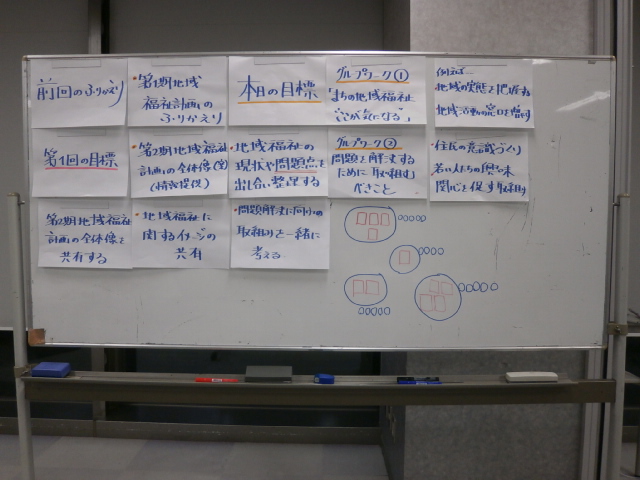 前回のふりかえり
・第1期地域
福祉計画の
ふりかえり
本日の目標
グループワーク①
「まちの地域福祉
ここが気になる」
例えば…
地域の実態を把握する
地域活動の窓口を増やす
第1回の目標
・第2期地域福祉
計画の全体像(案)
(情報提供)
・地域福祉の
現状や問題点を
出し合い整理する
グループワーク②
問題を解決する
ために取り組む
べきこと
・住民の意識づくり
・若い人たちの興味
関心を促す取組み
第2期地域福祉
計画の全体像を
共有する
・地域福祉に
関するイメージの
共有
・問題解決に向けた
取組みを一緒に
考える